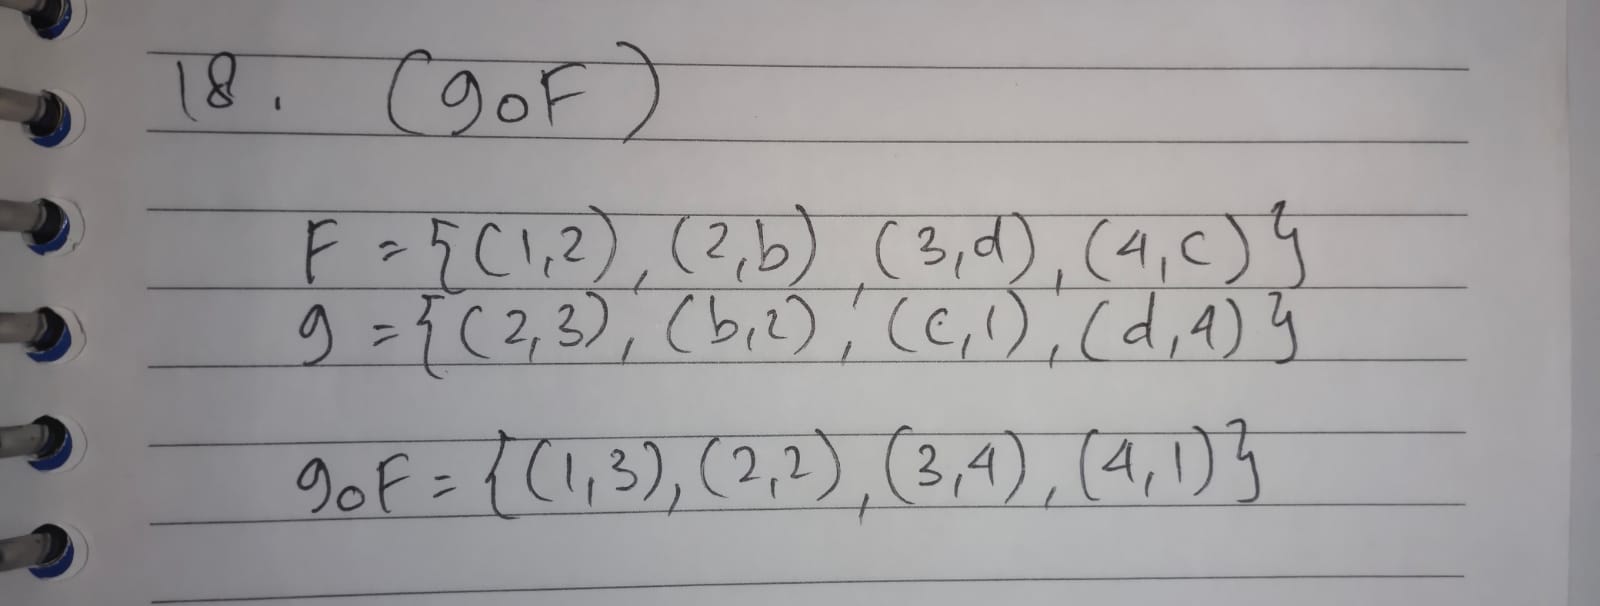 18. (goF)
F = {(1,2), (2,b), (3,d), (4,c)}
g = {(2,3), (b,2), (c,1), (d,4)}
goF = {(1,3), (2,2), (3,4), (4,1)}